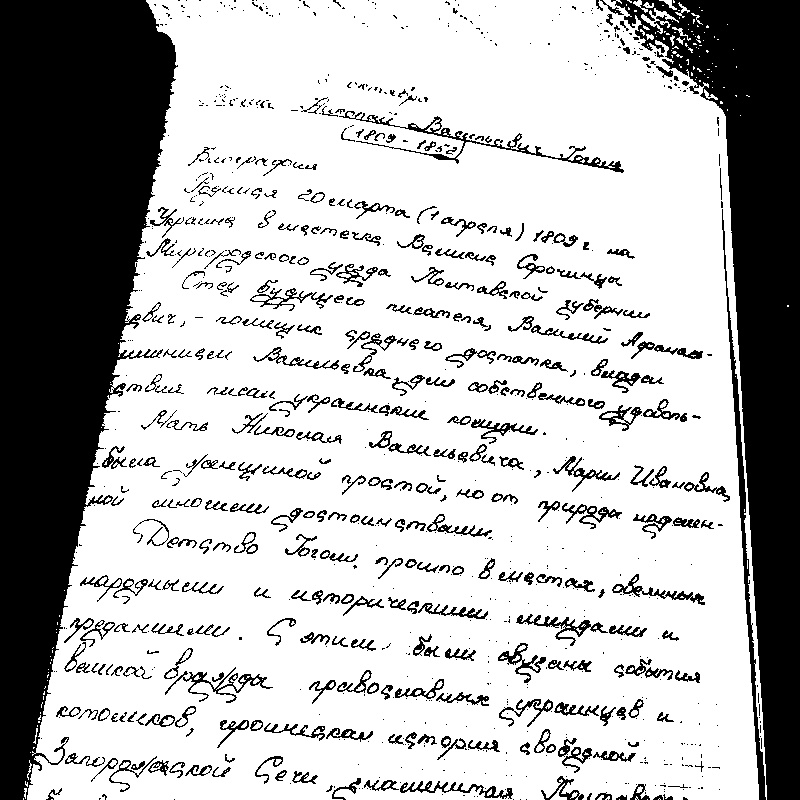 октября
Тема Николай Васильевич Гоголь
(1809 - 1852)
Биография
Родился 20 марта (1 апреля) 1809 г. на
Украине в местечке Великие Сорочинцы
Миргородского уезда Полтавской губернии
Отец будущего писателя, Василий Афанась-
евич, - помещик среднего достатка, владел
имением Васильевка, для собственного удоволь-
ствия писал украинские комедии.
Мать Николая Васильевича, Мария Ивановна,
была женщиной простой, но от природы наделен-
ной многими достоинствами.
Детство Гоголя прошло в местах, овеянных
народными и историческими легендами и
преданиями. С этим были связаны события
великой вражды православных украинцев и
католиков, героическая история свободной
Запорожской Сечи, знаменитая